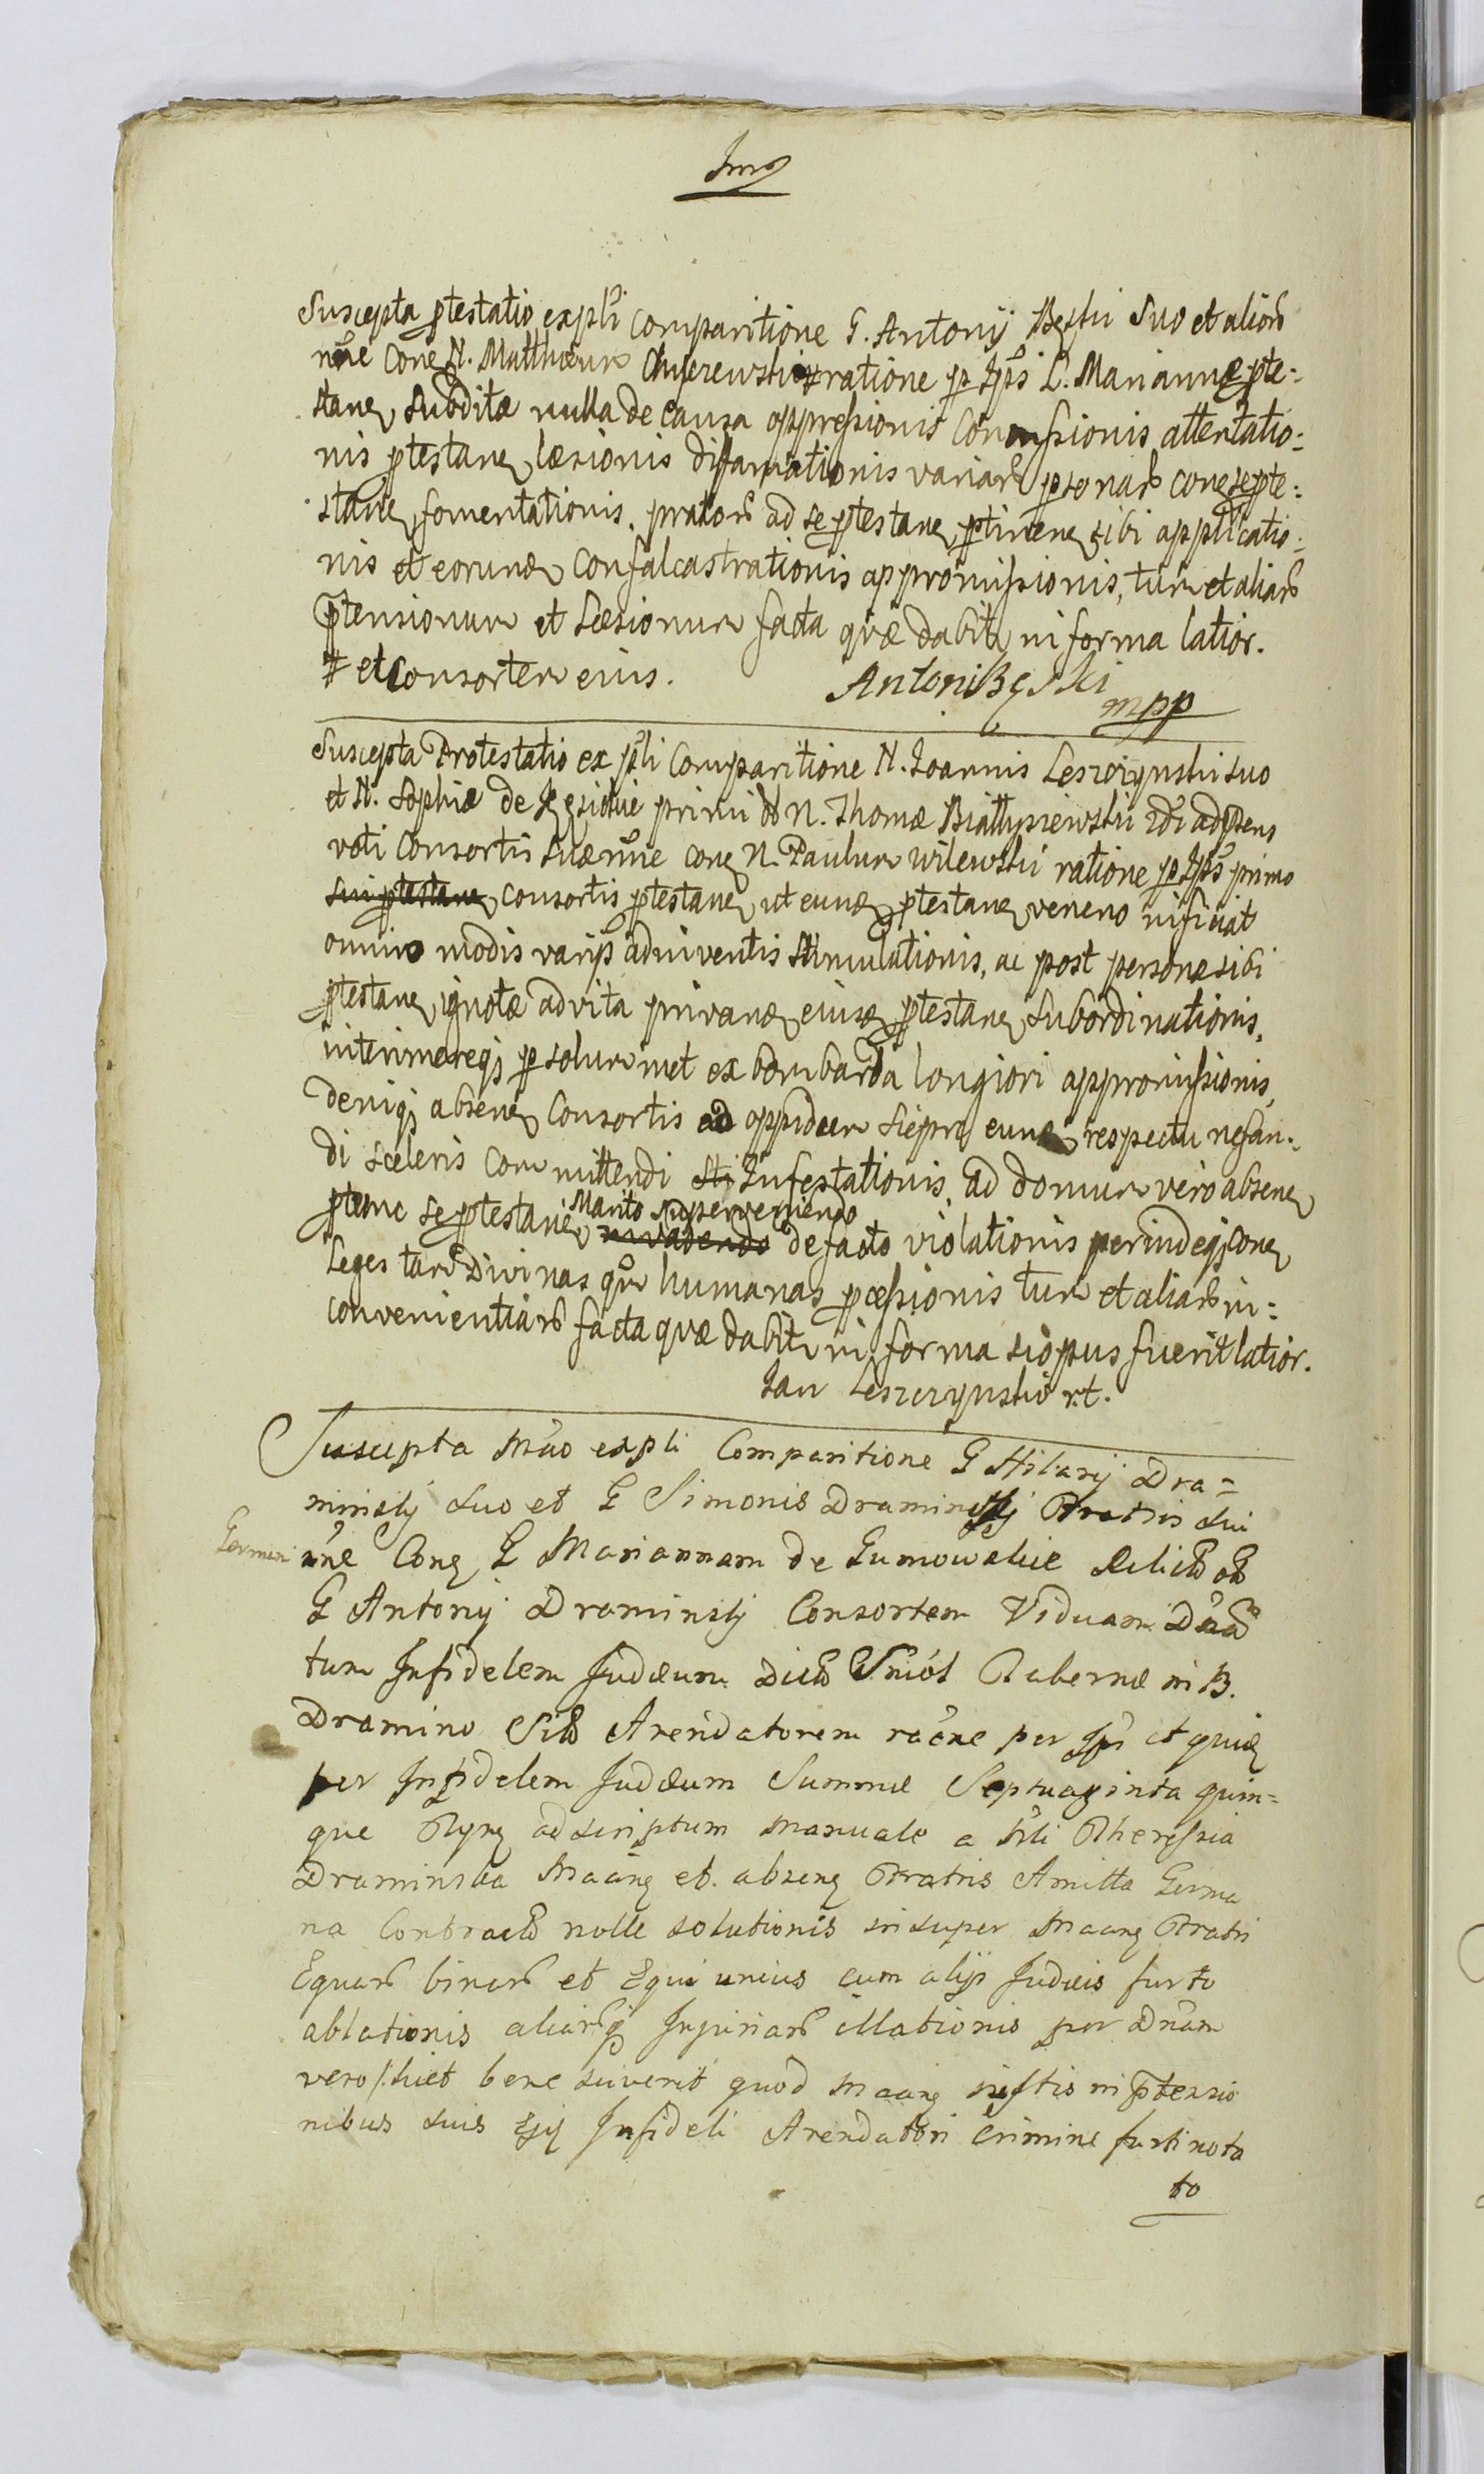 Suscepta ptestatio expli comparitione G. Antonij Bęski suo et alior
nne conę N. Matthæum ratione p Ips L. Mariannæ pte:
stanę subditæ nulla de causa oppressionis concussionis attentatio:
nis ptestanę læsionis difamationis variar psonar conę se pte:
stanę fomentationis, prator ad se ptestanę ptinenę sibi applicatio:
nis et eorundę confalcastrationis appromissionis, tum et aliar
ptensionum et læsionum facta quæ dabitur in forma latior.
# et Consortem eius.
Antoni Bęski
mpp
Suscepta Protestatio ex pli Comparitione N. Joannis Leszczynski suo
et N. Sophiæ de primi N. Thomæ 2di ad psens
voti Consortis suæ nne conę N. Paulum Wilewski ratione p Ips primo
sui ptestanę consortis ptestanę ut eundę ptestanę veneno inficiat
omnino modis varijs adinventis stimulationis, ac post personæ sibi
ptestanę ignotæ ad vita privandę eiusdę ptestanę subordinationis,
interimereqj p solummet ex bombarda longiori appromissionis,
deniqj absenę Consortis ad oppidum Sierpc eundę respectu nefan:
di sceleris committendi Infestationis, ad domum vero absenę
ptunc se ptestanę Marito superveniendo invadendo de facto violationis perindeqj conę
Leges tam Divinas qm humanas pcessionis tum et aliar in:
convenientiar facta quæ dabitur in forma si opus fuerit latior.
Jan Leszczynski rt.
Suscepta Mão expli Comparitione G Hilarij Dra=
minskj suo et G Simonis Draminskj Fratris sui
Germani nne Conę G Mariannam de Gumowskie Relictã
G Antonij Draminskj Consortem Viduam Dnã
tum Infidelem Judæum dictũ Tabernæ in B.
Dramino Sitũ Arendatorem raõne per Ips et quidę
per Infidelem Judæum Summæ Septuaginta quin=
que Tynę ad scriptum manuale a Theressia
Draminska Maãnę et absenę Fratris Amitta Germa
na Contractũ nolle solutionis insuper Maãnę Fratri
Equar binar et Equi unius cum alijs Judæis furto
ablationis aliarqj Injuriar illationis per Dnãm
vero /: licet bene sciverit quod Maãnę in ptensio
nibus suis Infideli Arendatori crimine furti nota
to